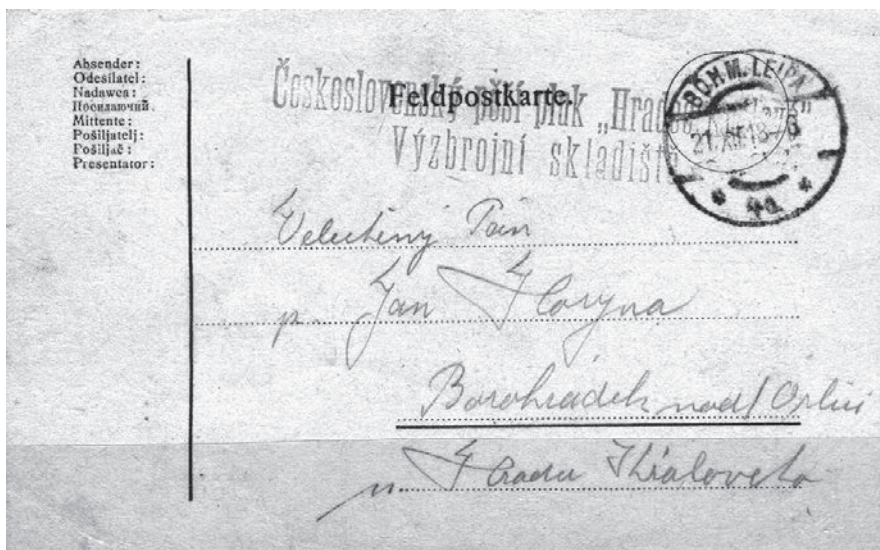 Absender:
Odesílatel:
Nadawca:
Посилаючий:
Mittente:
Pošiljatelj:
Pošiljač:
Presentator:
Československý pěší pluk „Hradec
Výzbrojní skladiště
Feldpostkarte.
BÖHM. LEIPA
21. XII. 18
4a
Velectěný Pán
p. Jan Horyna
Borohrádek nad Orlicí
u Hradce Králového